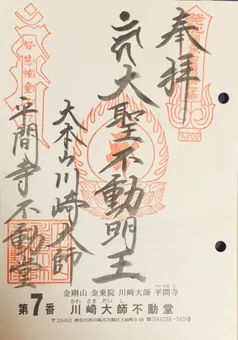 奉拝
大聖不動明王
大本山川崎大師
平間寺不動堂
智慧幢童
金剛山 金乗院 川崎大師 平間寺
かわ さき だい し
第7番 川崎大師不動堂